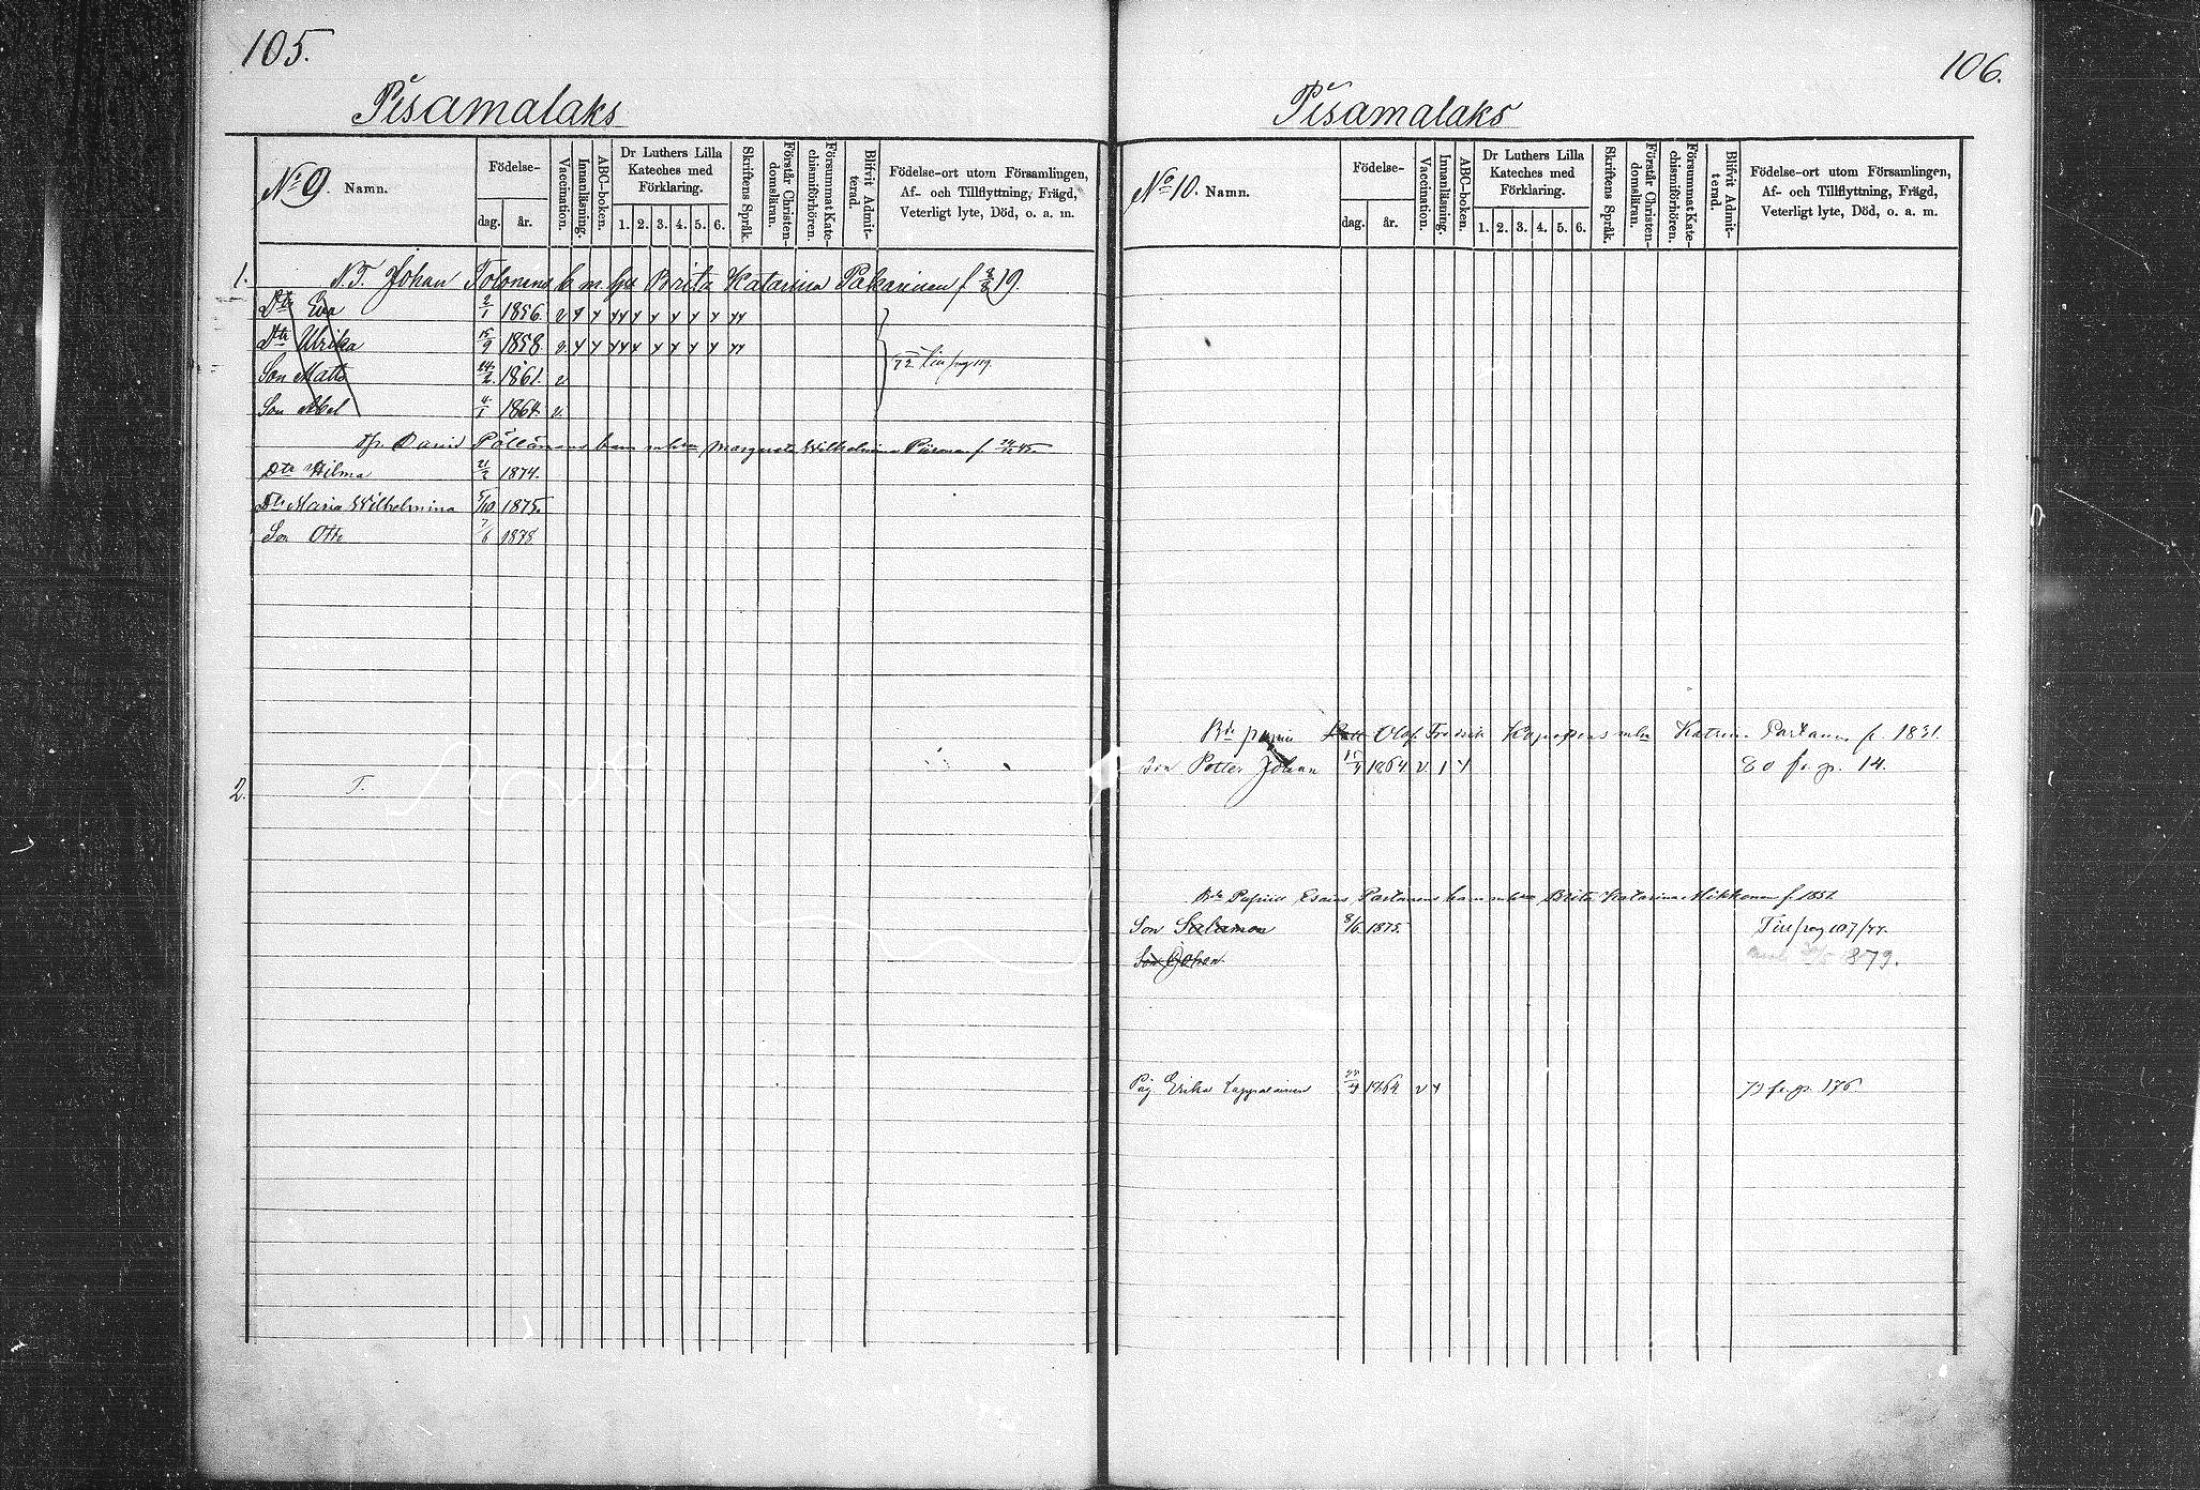 105.
Pisamalaks
No 9. Namn.
Födelse-
dag. år.
Vaccination.
Innanläsning.
ABC-boken.
Dr Luthers Lilla
Kateches med
Förklaring.
1. 2. 3. 4. 5. 6.
Skriftens Språk.
Förstår Christen-
domsläran.
Försummat Kate-
chismiförhören.
Blifvit Admit-
terad.
Födelse-ort utom Församlingen,
Af- och Tillflyttning, Frägd,
Veterligt lyte, Död, o. a. m.
1. N.T. Johan Tolonens b m Brita Katarina Pakarinen f 19.
Dtr Eva 2/1 1856. v
Dtr Ulrika 15/9 1858. v
72 pag 119.
Son Matts 24/2 1861. v
Son Abel 4/1 1864. v.
David Pöllänens barn Margareta Wilhelmina Piironen f. 45.
Dtr Hilma 21/2 1874.
Dtr Maria Wilhelmina 5/10 1875.
Son Otto 7/6 1878.
2. T.
106.
Pisamalaks
No 10. Namn.
Födelse-
dag. år.
Vaccination.
Innanläsning.
ABC-boken.
Dr Luthers Lilla
Kateches med
Förklaring.
1. 2. 3. 4. 5. 6.
Skriftens Språk.
Förstår Christen-
domsläran.
Försummat Kate-
chismiförhören.
Blifvit Admit-
terad.
Födelse-ort utom Församlingen,
Af- och Tillflyttning, Frägd,
Veterligt lyte, Död, o. a. m.
Olof Fredrik Katrin Partanen f. 1831.
Son Petter Johan 1864 v 80 fr. p. 14.
Esaias Partanens barn Brita Katarina Mikkonen f. 1851.
Son Salamon 8/6 1875. Till pag 107/77.
Son Johan 1879.
Pig Erika 1864. v 79 fr. p. 176